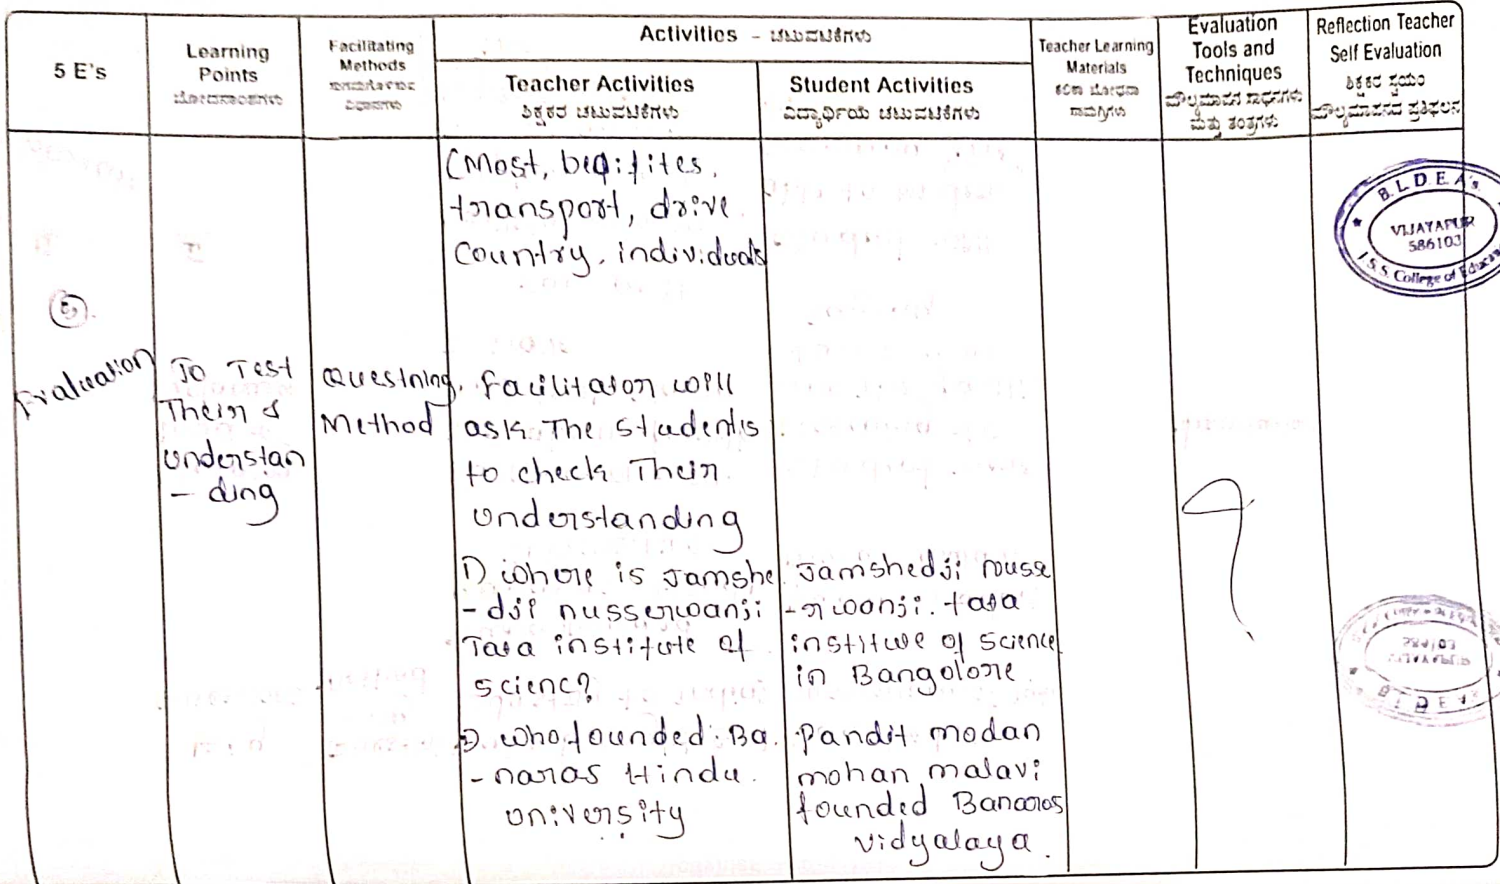 5 E's
Learning
Points
ಬೋಧನಾಂಶಗಳು
Facilitating
Methods
ಸುಗಮಗೊಳಿಸುವ
ವಿಧಾನಗಳು
Activities - ಚಟುವಟಿಕೆಗಳು
Teacher Activities
ಶಿಕ್ಷಕರ ಚಟುವಟಿಕೆಗಳು
Student Activities
ವಿದ್ಯಾರ್ಥಿಯ ಚಟುವಟಿಕೆಗಳು
Teacher Learning
Materials
ಕಲಿಕಾ ಬೋಧನಾ
ಸಾಮಗ್ರಿಗಳು
Evaluation
Tools and
Techniques
ಮೌಲ್ಯಮಾಪನ ಸಾಧನಗಳು
ಮತ್ತು ತಂತ್ರಗಳು
Reflection Teacher
Self Evaluation
ಶಿಕ್ಷಕರ ಸ್ವಯಂ
ಮೌಲ್ಯಮಾಪನದ ಪ್ರತಿಫಲನ
(Most, beqifites,
transport, drive
Country, individuals
B.L.D.E.A's.
VIJAYAPUR
586103
J.S.S. College of Educa
5.
Evaluation
To Test
Their &
understan
- ding
Questning
Method
Facilitator will
ask The students
to check Their
understanding
1) where is Jamshe
- dji nusserwanji
Tata institute of
scienc?
Jamshedji nusse
-rwonji. tata
institute of science
in Bangolore
2) who founded Ba
- naras Hindu
university
Pandit modan
mohan malavi
founded Banaras
vidyalaya.